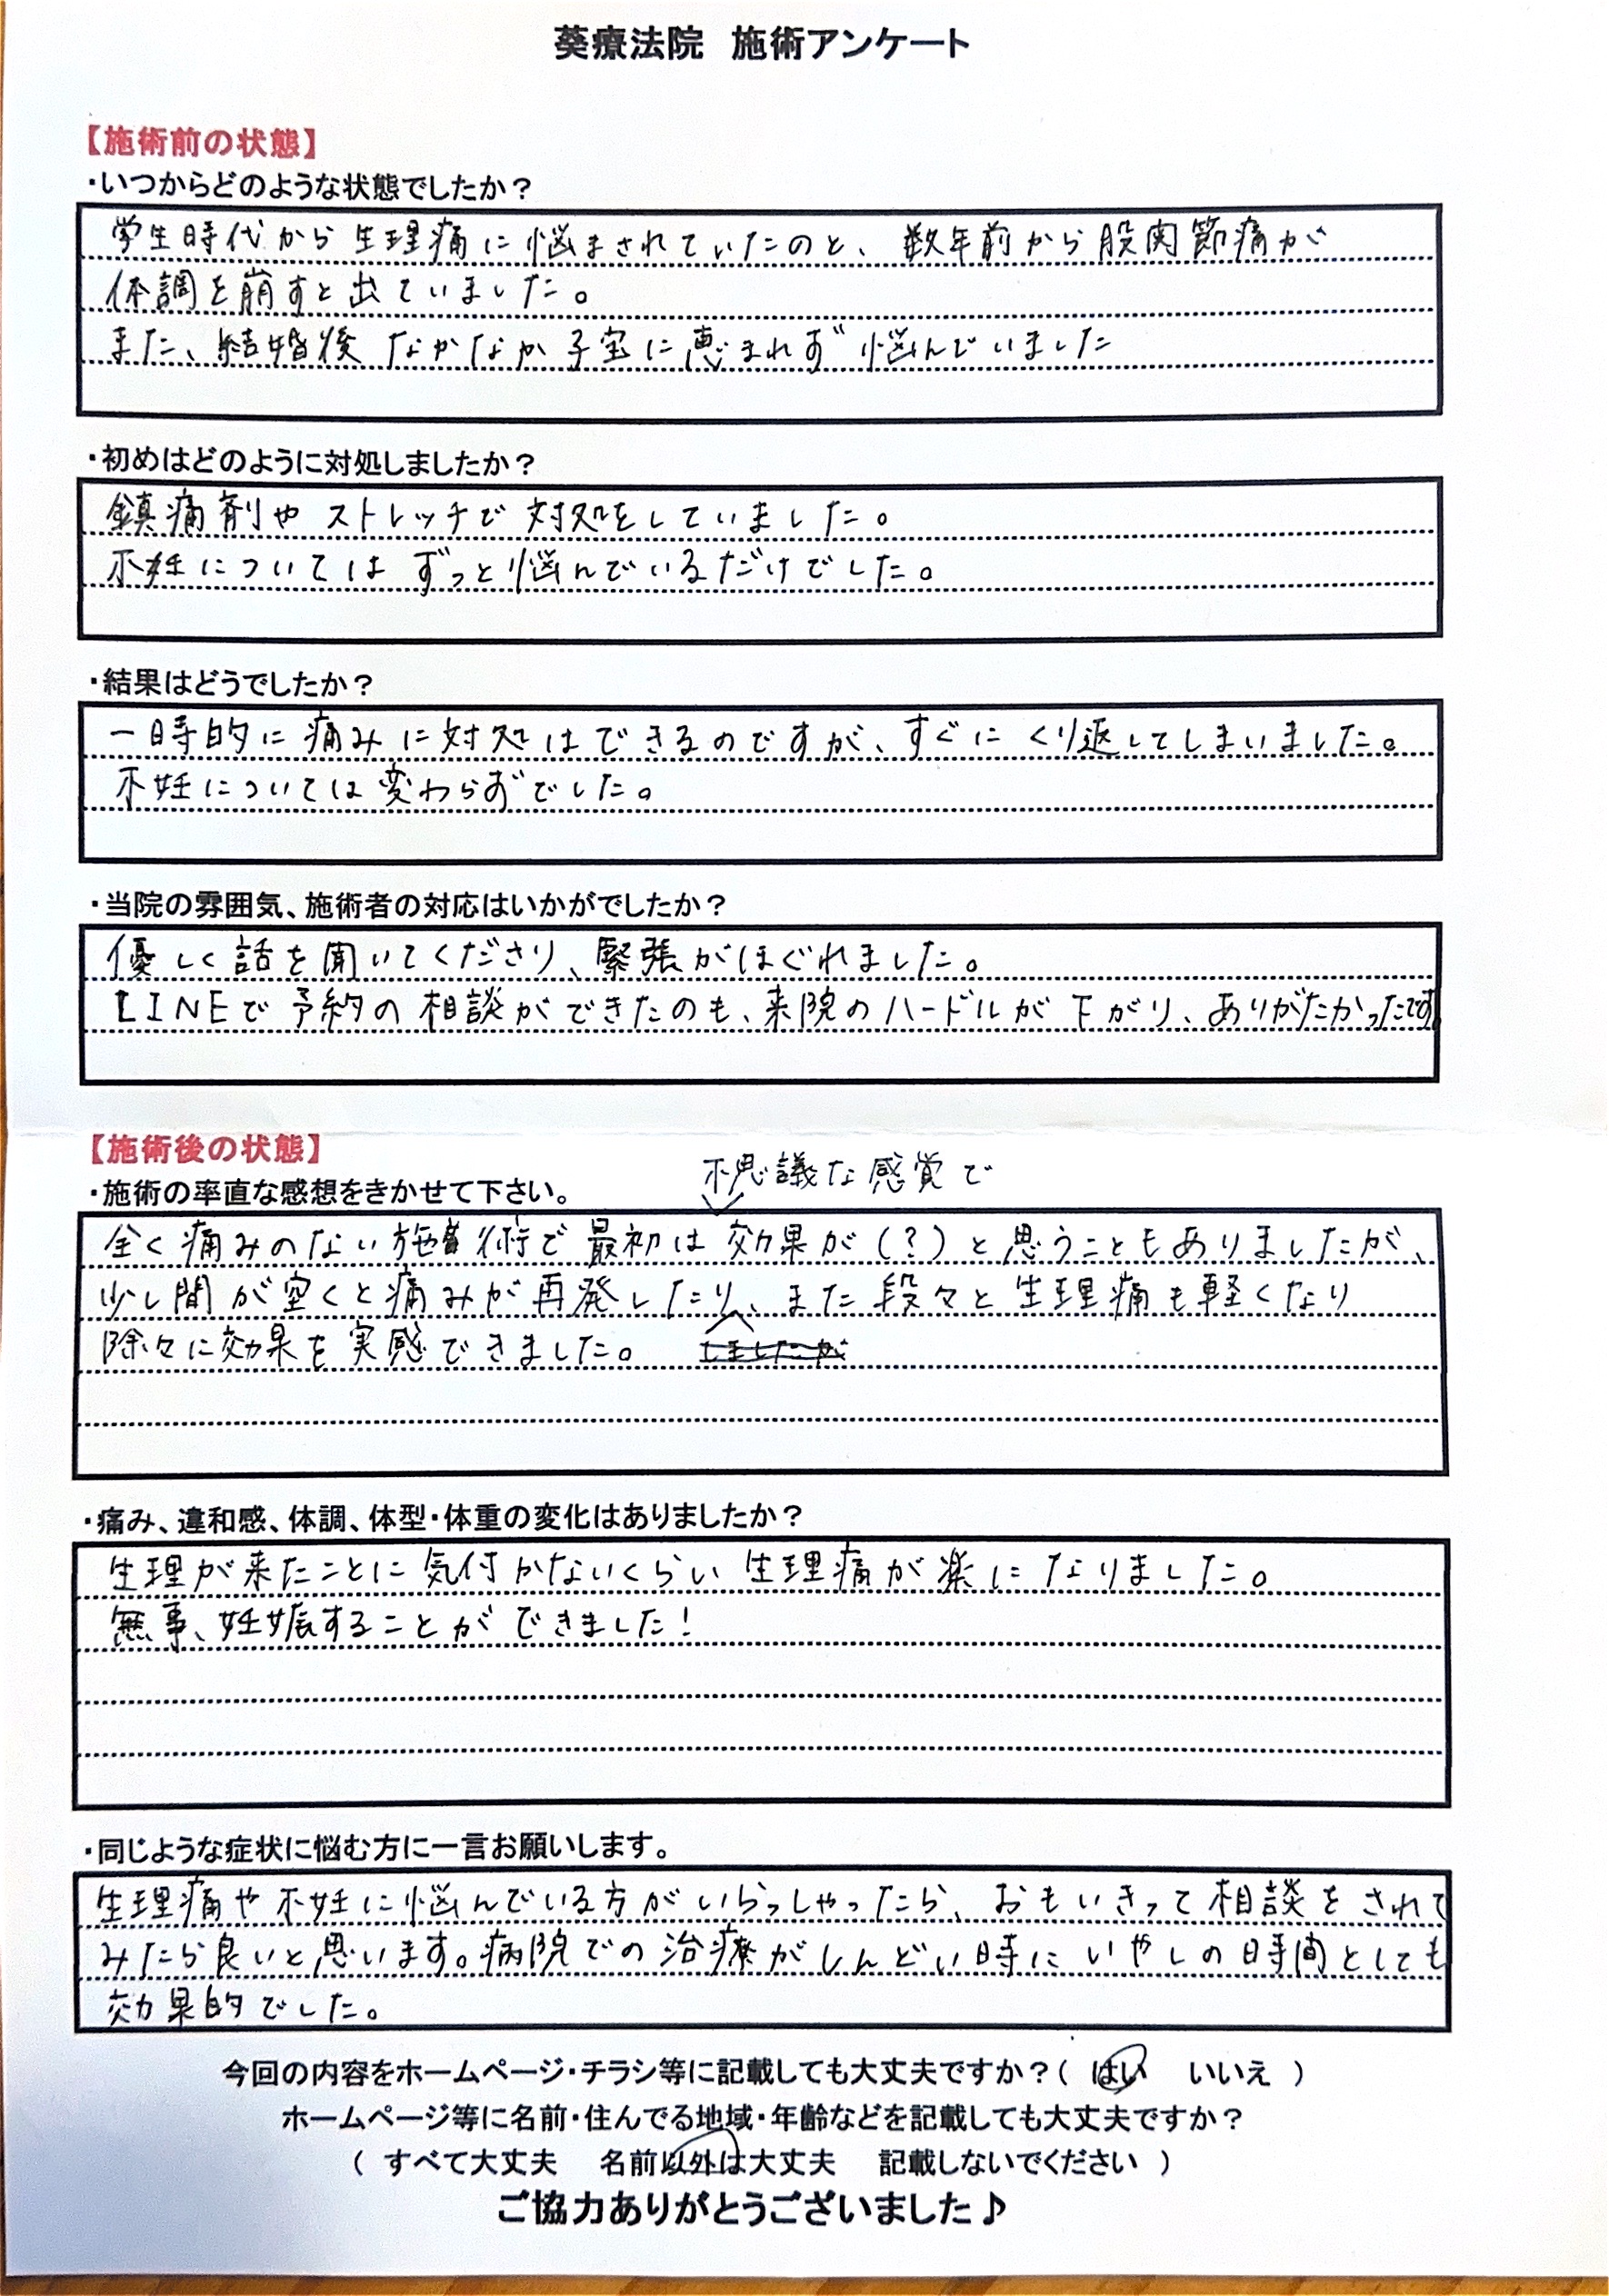 葵療法院　施術アンケート
【施術前の状態】
・いつからどのような状態でしたか？
学生時代から生理痛に悩まされていたのと、数年前から股関節痛が
体調を崩すと出ていました。
また、結婚後なかなか子宝に恵まれず悩んでいました
・初めはどのように対処しましたか？
鎮痛剤やストレッチで対処をしていました。
不妊についてはずっと悩んでいるだけでした。
・結果はどうでしたか？
一時的に痛みに対処はできるのですが、すぐにくり返してしまいました。
不妊については変わらずでした。
・当院の雰囲気、施術者の対応はいかがでしたか？
優しく話を聞いてくださり、緊張がほぐれました。
LINEで予約の相談ができたのも、来院のハードルが下がり、ありがたかったです。
【施術後の状態】
・施術の率直な感想をきかせて下さい。
不思議な感覚で
全く痛みのない施術で最初は効果が(?)と思うこともありましたが、
少し間が空くと痛みが再発したり、また段々と生理痛も軽くなり
除々に効果を実感できました。
しましたが
・痛み、違和感、体調、体型・体重の変化はありましたか？
生理が来たことに気付かないくらい生理痛が楽になりました。
無事、妊娠することができました！
・同じような症状に悩む方に一言お願いします。
生理痛や不妊に悩んでいる方がいらっしゃったら、おもいきって相談をされて
みたら良いと思います。病院での治療がしんどい時にいやしの時間としても
効果的でした。
今回の内容をホームページ・チラシ等に記載しても大丈夫ですか？（　はい　いいえ　）
ホームページ等に名前・住んでる地域・年齢などを記載しても大丈夫ですか？
（　すべて大丈夫　名前以外は大丈夫　記載しないでください　）
ご協力ありがとうございました♪